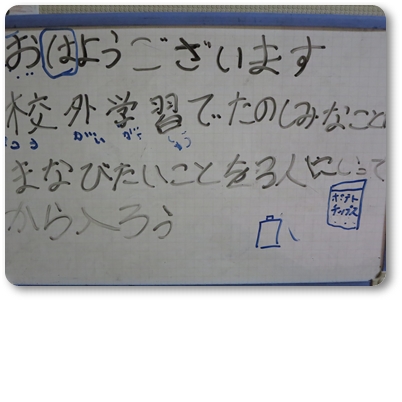 おはようございます
校外学習でたのしみなこと
がい がく しゅう
まなびたいことを3人にいって
から入ろう
ポテト
チップス